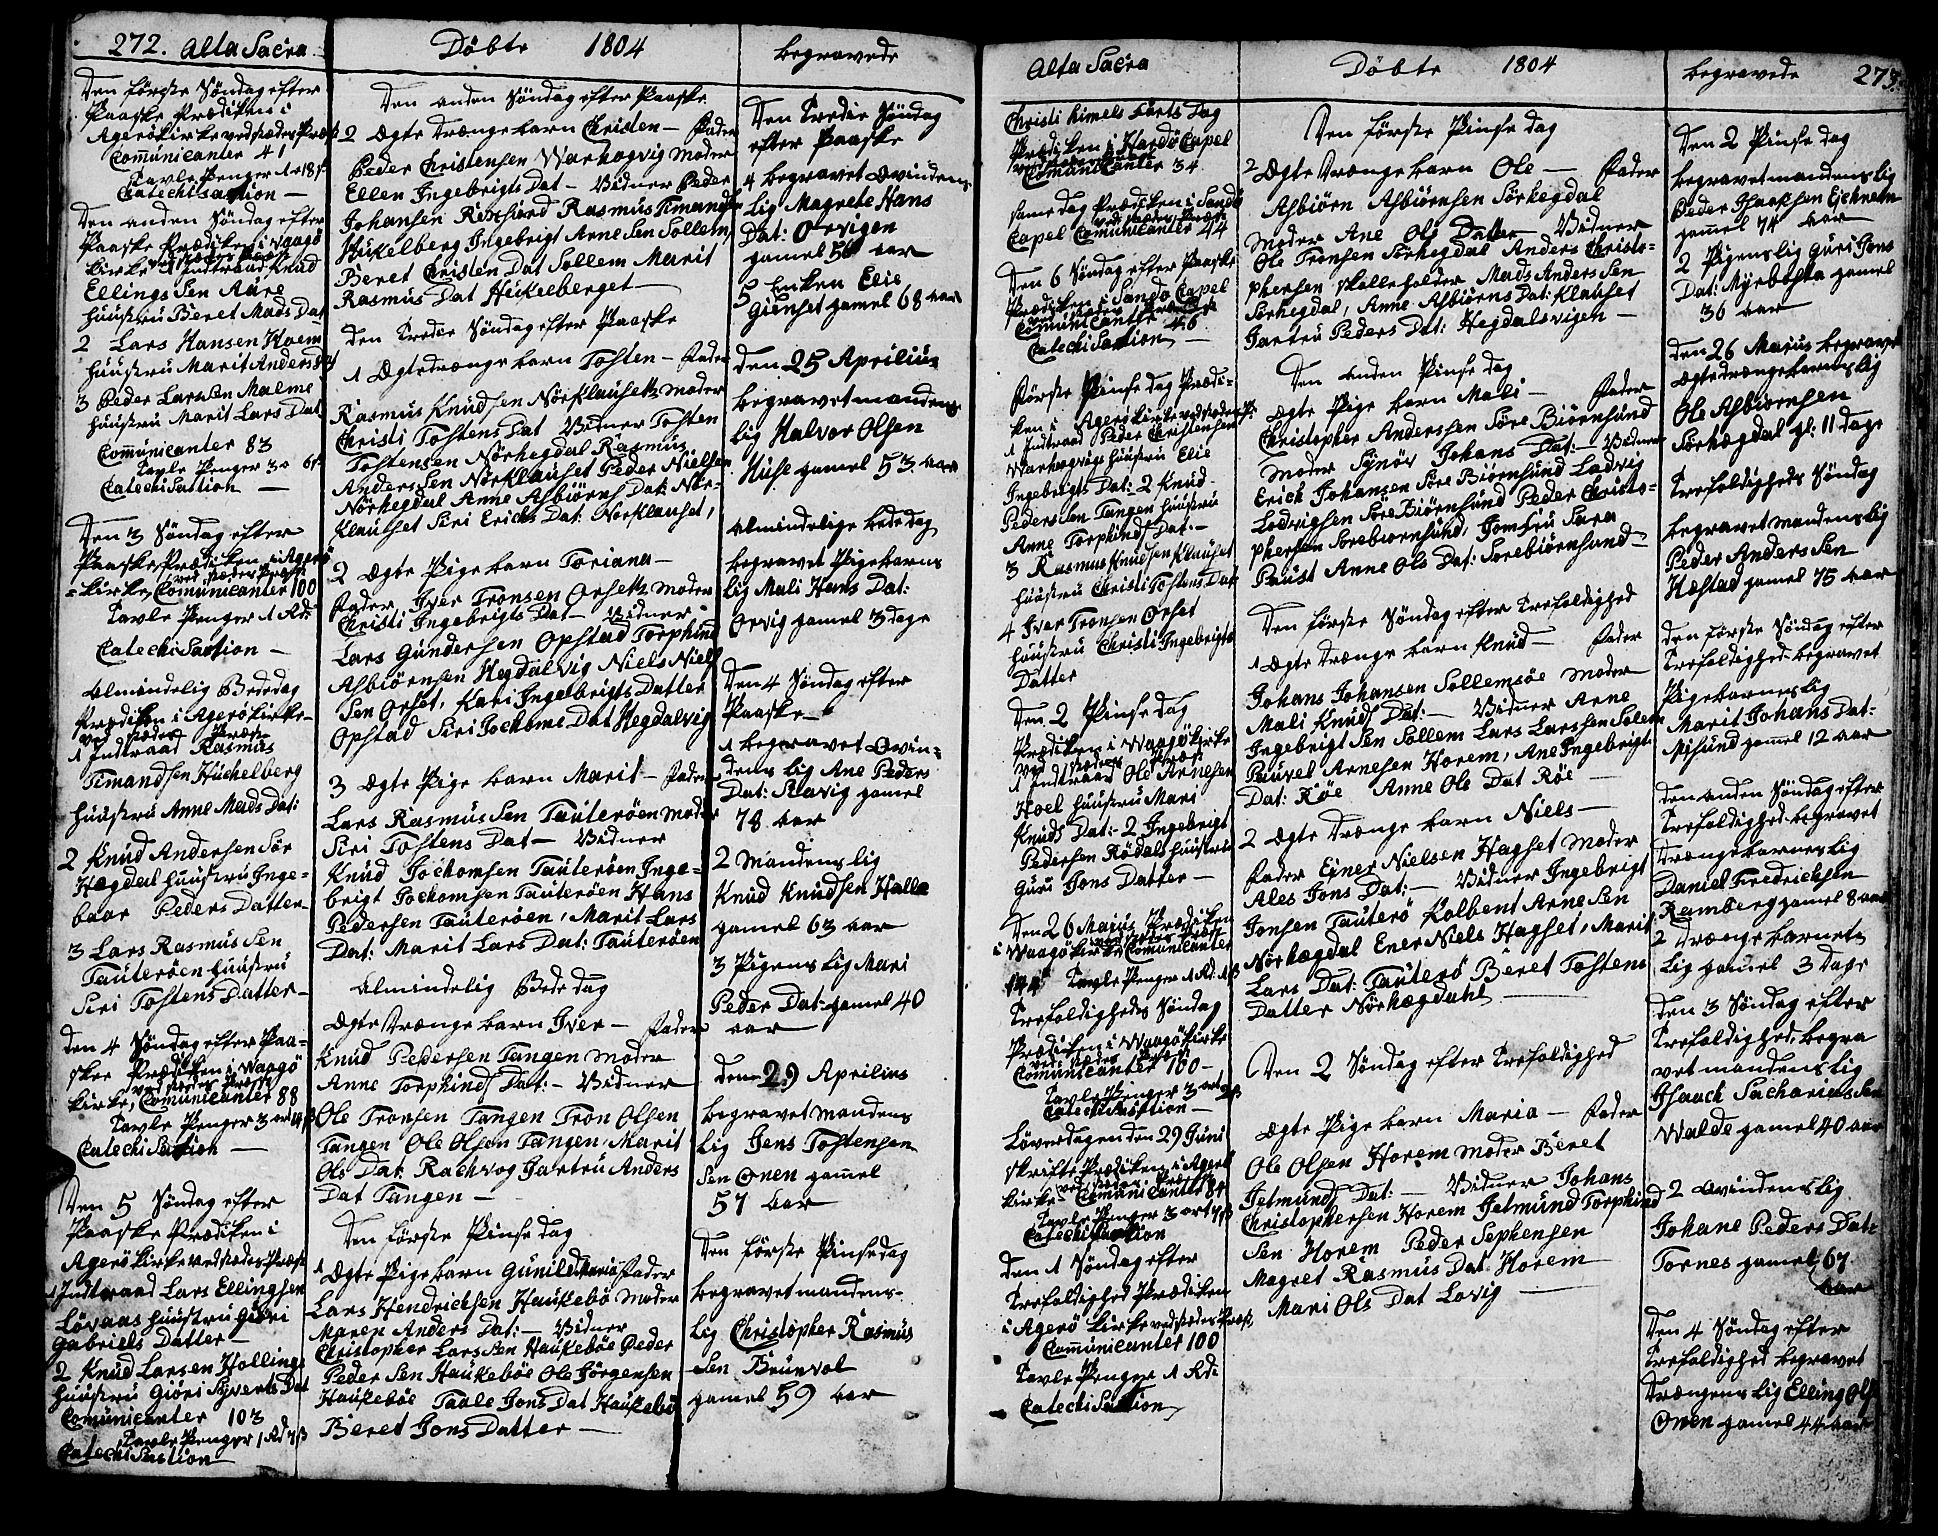 272. Alta Sacra
Den förste Söndag efter
Paaske Prædiken i
Agerö Kirke ved stedes Præst
Comunicanter 41
Tavle Penger
Catechisation —
Den anden Söndag efter
Paaske Prædiken i Vaagö
Kirke ved stedes Præst
1 Indtraad Knud
Ellings Sen Aare
Huustru Beret Mads Dat
2 Lars Hansen Hoem
Huustru Marit Anders Dat
3 Peder Larsen Malme
Huustru Marit Lars Dat
Comunicanter 83
Tavle Penger
Catechisation —
Den 3 Söndag efter
Paaske Prædiken i Agerö
Kirke ved stedes Præst
Comunicanter 100
Tavle Penger 1 Rd:
Catechisation —
Almindelig Bededag
Prædiken i Agerö Kirke
ved stedes Præst
1 Indtraad Rasmus
Timandsen Huckelberg
Huustru Anne Mads Dat:
2 Knud Andersen Sör
Hægdal Huustru Inge-
baar Peders Datter
3 Lars Rasmus Sen
Tauteröen Huustru
Siri Tostens Datter
Den 4 Söndag efter Paa-
ske Prædiken i Waagö
ved stedes Præst
Kirke, Comunicanter 88
Tavle Penger 3 ort
Catechisation —
Den 5 Söndag efter
Paaske Prædiken i
Agerö Kirke ved stedes Præst
1 Indtraad Lars Ellingsen
Lövaas Huustru Giöri
Gabriels Datter
2 Knud Larsen Hollings
Huustru Giöri Syverts Dat
Comunicanter 103
Tavle Penger 1 Rd
Catechisation
Döbte 1804
Den anden Söndag efter Paaske
2 Ægte Drænge barn Christen — Fader
Peder Christensen Warhogvig Moder
Ellen Ingebrigts Dat — Vidner Peder
Johansen Rensfiord Rasmus Timandsen
Hukelberg Ingebrigt Arne Sen Sollem,
Beret Christen Dat Sollem Marit
Rasmus Dat Hukelberget —
Den Tredie Söndag efter Paaske
1 Ægte Drænge barn Tosten — Fader
Rasmus Knudsen Nörklauset Moder
Christi Tostens Dat Vidner Tosten
Tostensen Nörhegdal Rasmus
Anders Sen Nörklauset Peder Nielsen
Nörhegdal Anne Asbiörns Dat: Nör-
klauset Siri Erichs Dat: Nörklauset,
2 Ægte Pige barn Toriana —
Fader Iver Tronsen Orset Moder
Christi Ingebrigts Dat — Vidner
Lars Gundersen Opstad Torphind
Asbiörnsen Hegdalvig Niels Niels
Sen Orset, Kari Ingebrigts Datter
Opstad Siri Jockoms Dat Hegdalvig
3 Ægte Pige barn Marit — Fader
Lars Rasmus Sen Tauteröen Moder
Siri Tostens Dat — Vidner
Knud Jockomsen Tauteröen Inge-
brigt Jockomsen Tauteröen Hans
Pedersen Tauteröen, Marit Lars
Dat: Marit Lars Dat: Tauteröen
Almindelig Bede dag
Ægte Drænge barn Iver — Fader
Knud Pedersen Tangen Moder
Anne Torphinds Dat: — Vidner
Ole Tronsen Tangen Tron Olsen
Tangen Ole Olsen Tangen, Marit
Ols Dat: Rachvog Gartru Anders
Dat Tangen —
Den förste Pinse dag
1 Ægte Pige barn Gunild Maria Fader
Lars Hendricksen Haukebö Moder
Maren Anders Dat: — Vidner
Christopher Lars Sen Haukeböe Peder
Peder Sen Haukeböe Ole Jörgensen
Haukeböe Taale Jons Dat Haukebö
Beret Jons Datter —
Begravede
Den Tredie Söndag
efter Paaske
4 begravet Qvindens
Lig Magrete Hans
Dat: Orvigen
gamel 56 aar
5 Enken Elie
Gienset gamel 68 aar
Den 25 Aprilius
begravet mandens
Lig Halvor Olsen
Huse gamel 53 aar
Almindelige bededag
begravet Pigebarns
Lig Mali Hans Dat:
Orvig gamel 3 dage
Den 4 Söndag efter
Paaske —
1 begravet Qvin-
dens Lig Ane Peders
Dat: Slavig gamel
78 aar
2 Mandens Lig
Knud Knudsen Halle
gamel 63 aar
3 Pigens Lig Mari
Peder Dat: gamel 40
aar
Den 29 Aprilius
begravet mandens
Lig Jens Tostensen
Sen Onen gamel
57 aar
Den förste Pinsedag
begravet mandens
Lig Christopher Rasmus
Sen Brunvol
gamel 59 aar
Alta Sacra
Christi Himels farts Dag
Prædiken i Hardö Capel
ved stedes Præst
Comunicanter 34
Same dag Prædiken i Sandö
ved stedes Præst
Capel Comunicanter 44
Den 6 Söndag efter Paaske
Prædiken i Sandö Capel
Comunicanter 46
Catechisation —
Förste Pinse dag Prædi-
ken i Agerö Kirke ved stedes Pr:
1 Indtraad Peder Christensen
Warhogvig Huustru Elie
Ingebrigts Dat: 2 Knud
Peders Sen Tangen Huustru
Anne Torphinds Dat: —
3 Rasmus Knudsen Klauset
Huustru Christi Tostens Dat
4 Iver Tronsen Orset
Huustru Christi Ingebrigts
Datter
Den 2 Pinse dag
Prædiken i Waagö Kirke
ved stedes Præst
1 Indtraad Ole Arnesen
Hoel Huustru Mari
Knuds Dat: — 2 Ingebrigt
Pedersen Rödal Huustru
Guru Jons Datter —
Den 26 Majus Prædiken
i Waagö Kirke Comunicanter
144 Tavle Penger 1 Rd:
Trefoldigheds Söndag
Prædiken i Waagö Kirke
ved stedes Præst
Comunicanter 100 —
Tavle Penger 3 ort
Catechisation —
Löverdagen den 29 Juni
Skrifte Prædiken i Agerö
ved stedes Præst
Kirke Comunicanter 84
Tavle Penger 3 ort
Catechisation
Den 1 Söndag efter
Trefoldighed Prædiken
i Agerö Kirke ved stedes Præst
Comunicanter 100
Tavle Penger 1 Rd:
Catechisation
Döbte 1804
Den förste Pinse dag
2 Ægte Drænge barn Ole — Fader
Asbiörn Asbiörnsen Sörhegdal
Moder Ane Ols Datter Vidner
Ole Tronsen Sörhegdal Anders Christo-
phersen Skolleholder Mads Anders Sen
Sörhegdal, Anne Asbiörns Dat: Klauset
Gartru Peders Dat: Hegdalsvigen —
Den anden Pinse dag
Ægte Pige barn Mali — Fader
Christopher Andersen Söre Biörnsund
Moder Synöv Johans Dat: — Vidner
Erich Johansen Söre Biörnsund Ladvig
Lodvigsen Söre Biörnsund Peder Christo-
phersen Sörebiörnsund, Jomfru Sara
Paust Anne Ols Dat: Sörebiörnsund —
Den förste Söndag efter Trefoldighed
1 Ægte Drænge barn Knud — Fader
Johans Johansen Sollemsöe Moder
Mali Knuds Dat: — Vidner Arne
Ingebrigt Sen Sollem Lars Larssen Solem
Pauvel Arnesen Horem, Ane Ingebrigts
Dat: Röe Anne Ole Dat Röe —
2 Ægte Drænge barn Niels —
Fader Ejner Nielsen Hagset Moder
Ales Jons Dat: — Vidner Ingebrigt
Jonsen Tauterö Kolbent Arne Sen
Nörhægdal Ener Niels Hagset, Marit
Lars Dat: Tauterö Beret Tostens
Datter Nörhægdahl —
Den 2 Söndag efter Trefoldighed
Ægte Pige barn Maria — Fader
Ole Olsen Horem Moder Beret
Jetmunds Dat: — Vidner Johans
Christophersen Horem Jetmund Torphind
Sen Horem Peder Sephensen
Magret Rasmus Dat Horem
Mari Ols Dat Lovig —
Begravede 273.
Den 2 Pinse dag
begravet mandens Lig
Peder Isaaksen Ejckrem
gamel 74 aar
2 Pigens Lig Guri Jons
Dat: Myrbosta gamel
36 aar
Den 26 Majus begravet
Ægte Drænge barns Lig
Ole Asbiornsen
Sörhægdal gl: 11 Dage
Trefoldigheds Söndag
begravet mandens Lig
Peder Anders Sen
Hostad gamel 75 aar
Den förste Söndag efter
Trefoldighed begravet
Pige barnes Lig
Marit Johans Dat:
Misund gamel 12 aar
Den anden Söndag efter
Trefoldighed begravet
Drænge barnes Lig
Daniel Fredricksen
Ramberg gamel 8 aar
2 Drænge barnets
Lig gamel 3 Dage
Den 3 Söndag efter
Trefoldighed, begra
vet mandens Lig
Isaach Sacharias Sen
Walde gamel 40 aar
2 Qvindens Lig
Johane Peders Dat:
Tornes gamel 67
aar
Den 4 Söndag efter
Trefoldighed begravet
Drængens Lig Elling Ols
Onen gamel 44 aar